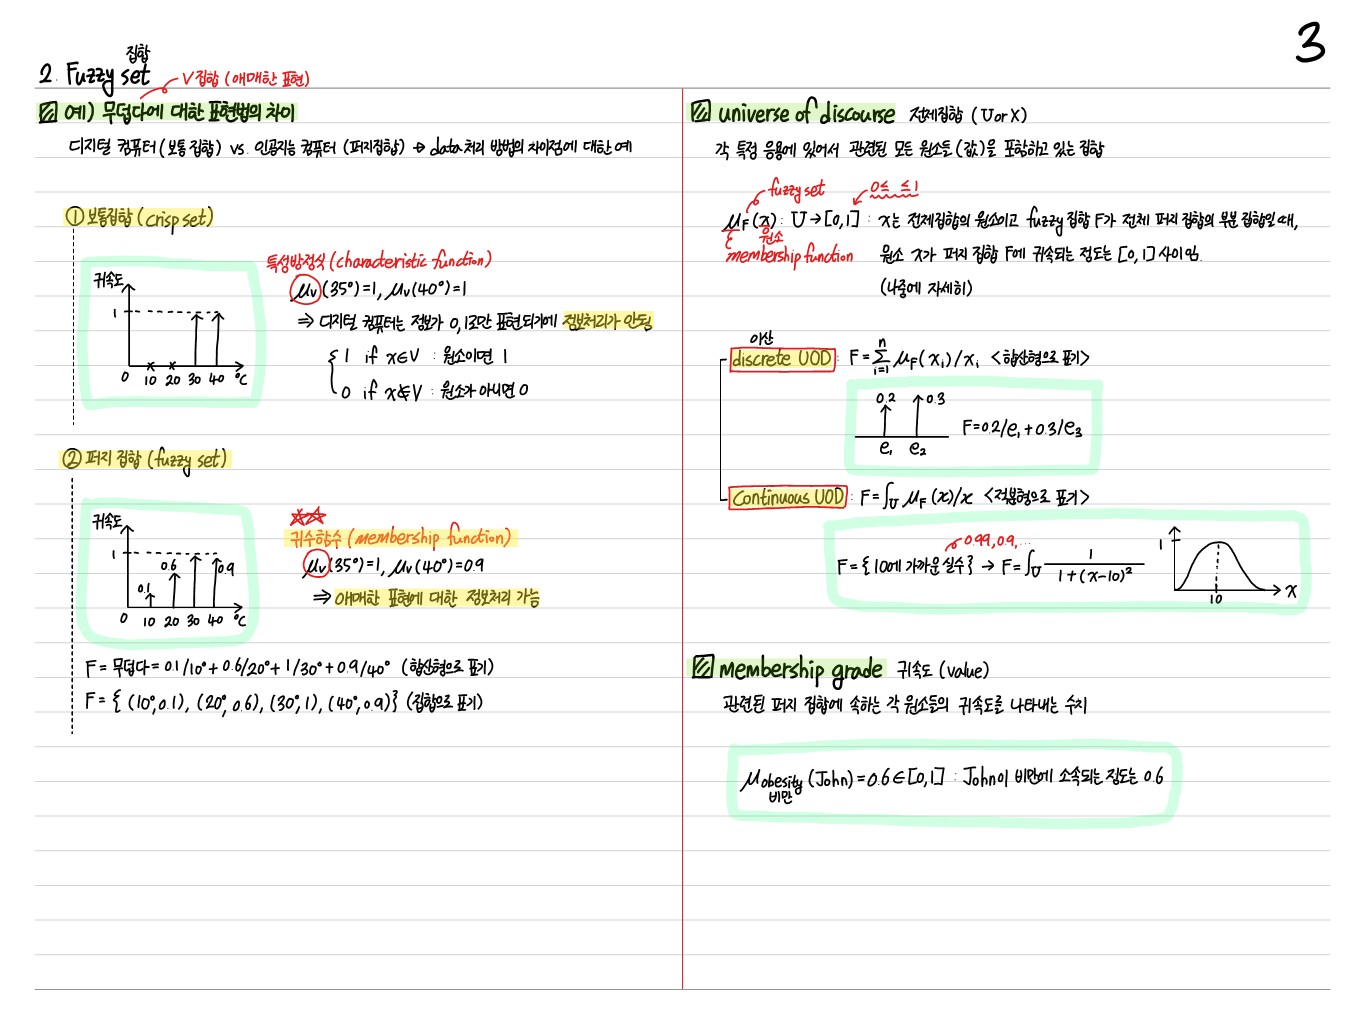 3
집합
2. Fuzzy set
V집합 (애매한 표현)
예) 무덥다에 대한 표현법의 차이
디지털 컴퓨터(보통 집합) vs. 인공지능 컴퓨터 (퍼지집합) → data 처리 방법의 차이점에 대한 예
① 보통집합 (crisp set)
귀속도
1
0 10 20 30 40 °C
특성방정식 (characteristic function)
μv(35°)=1, μv(40°)=1
⇒ 디지털 컴퓨터는 정보가 0,1로만 표현되기에 정보처리가 안됨
1 if x∈V : 원소이면 1
0 if x∉V : 원소가 아니면 0
② 퍼지 집합 (fuzzy set)
귀속도
1
0.1 0.6 0.9
0 10 20 30 40 °C
☆☆
귀수함수 (membership function)
μv(35°)=1, μv(40°)=0.9
⇒ 애매한 표현에 대한 정보처리 가능
F = 무덥다 = 0.1/10° + 0.6/20° + 1/30° + 0.9/40° (합산형으로 표기)
F = { (10°,0.1), (20°,0.6), (30°,1), (40°,0.9)} (집합으로 표기)
universe of discourse 전체집합 (U or X)
각 특정 응용에 있어서 관련된 모든 원소들(값)을 포함하고 있는 집합
fuzzy set 0≤ ≤1
μF(x) : U→[0,1] : x는 전체집합의 원소이고 fuzzy 집합 F가 전체 퍼지 집합의 부분 집합일 때,
원소
membership function 원소 x가 퍼지 집합 F에 귀속되는 정도는 [0,1] 사이임.
(나중에 자세히)
이산
discrete UOD : F = Σ(i=1, n) μF(xi)/xi <합산형으로 표기>
0.2 0.3
e₁ e₂
F=0.2/e₁+0.3/e₃
Continuous UOD : F=∫U μF(x)/x <적분형으로 표기>
0.99, 0.9, ...
F={10에 가까운 실수} → F=∫U 1/(1+(x-10)²)
1
10 x
membership grade 귀속도 (value)
관련된 퍼지 집합에 속하는 각 원소들의 귀속도를 나타내는 수치
μobesity(John)=0.6∈[0,1] : John이 비만에 소속되는 정도는 0.6
비만